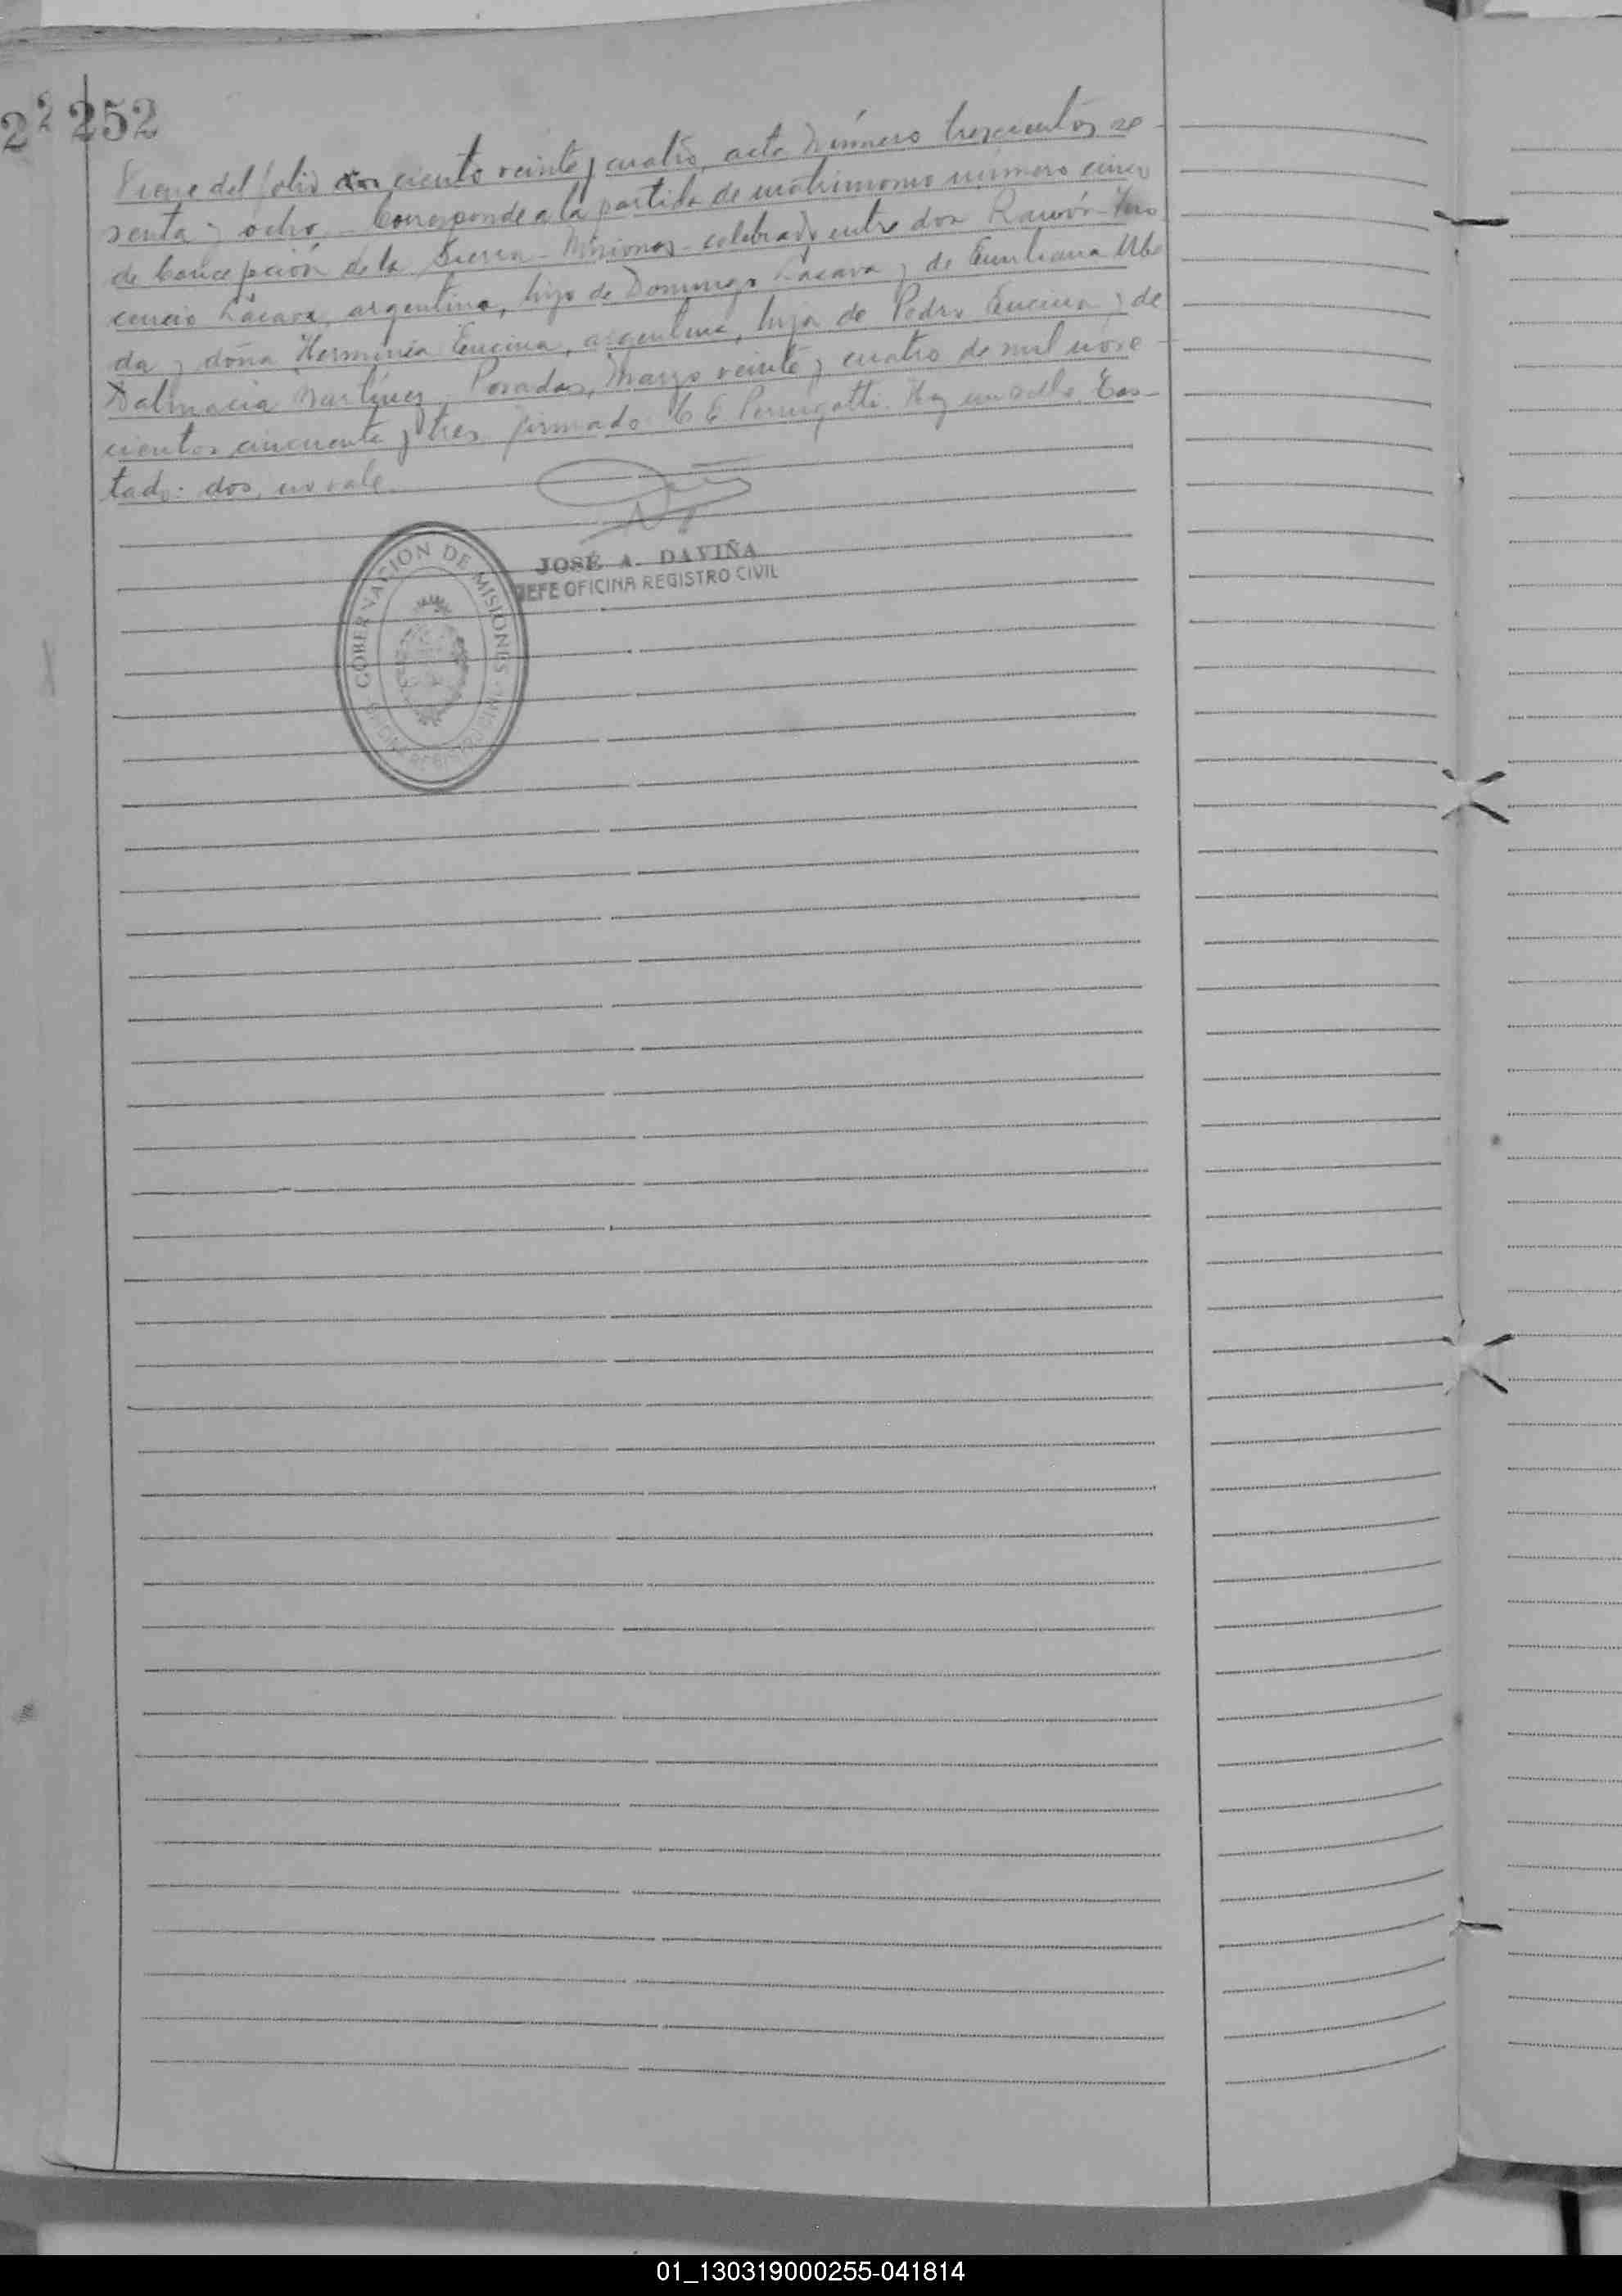 22 252
Viene del folio dos ciento veinte y cuatro, acta número trescientos se-
senta y ocho. - Corresponde a la partida de matrimonio número cinco
de Concepción de la Sierra - Misiones - celebrado entre don Ramón
cencio Lacava, argentino, hijo de Domingo Lacava y de Emiliana Ube
da y doña Herminia Encina, argentina, hija de Pedro Encina y de
Dalmacia Martínez. Posadas, Marzo veinte y cuatro de mil nove-
cientos cincuenta y tres. firmado: C E Hay un sello. Tes-
tado: dos, no vale.
JOSÉ A. DAVIÑA
JEFE OFICINA REGISTRO CIVIL
GOBERNACION DE MISIONES
OFICINA REGISTRO CIVIL
01_130319000255-041814